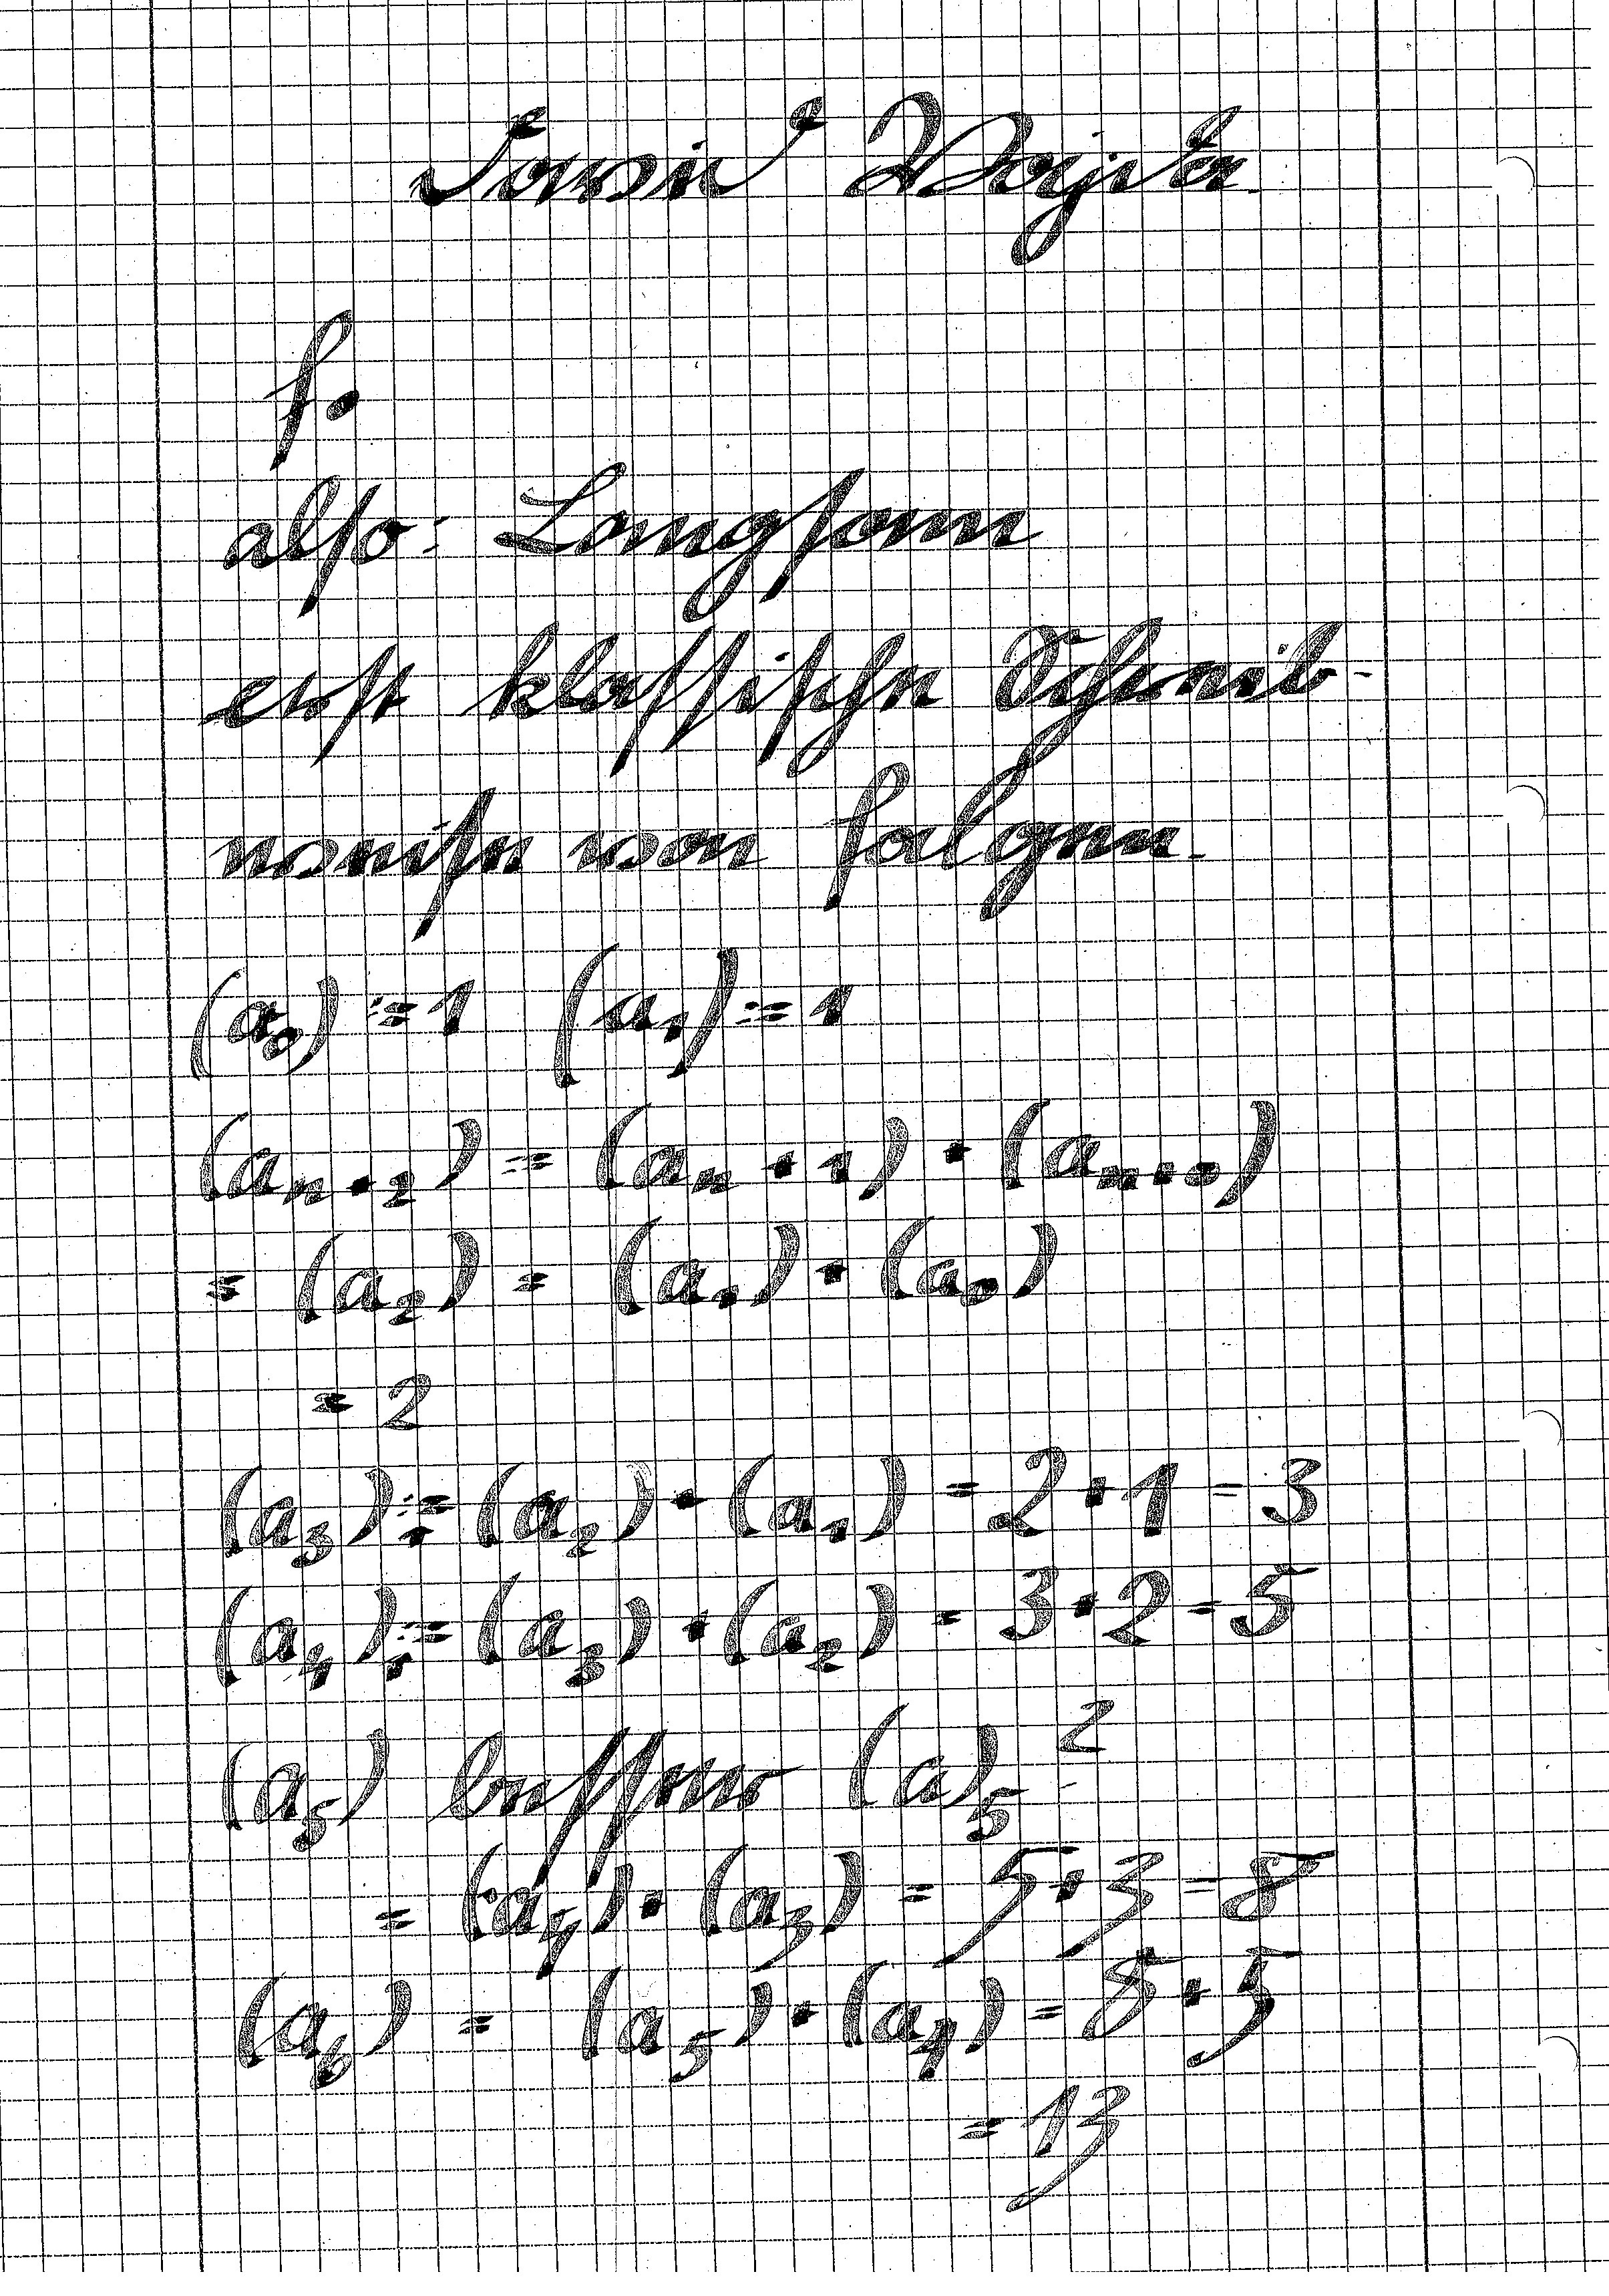 f.
alſo: Langſam
erſt klaſſiſche Schreib-
weiſe von folgen.
(a₀) := 1 (a₁) := 1
(aₙ₊₂) := (aₙ₊₁) + (aₙ₊₀)
= (a₂) = (a₁) + (a₀)
= 2
(a₃) := (a₂) + (a₁) = 2+1 = 3
(a₄) := (a₃) + (a₂) = 3+2 = 5
(a₅) beſſer (a)₅ ?
= (a₄) + (a₃) = 5+3 = 8
(a₆) = (a₅) + (a₄) = 8+5
= 13